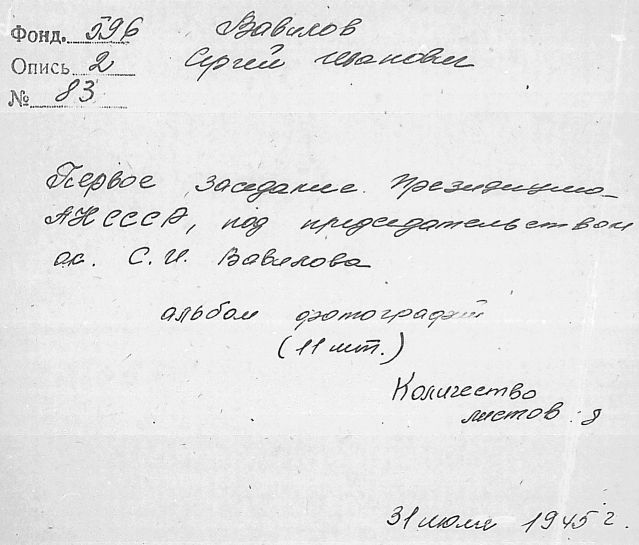 Фонд. 596 Вавилов
Опись 2 Сергей Иванович
№ 83
Первое заседание Президиума
АН СССР, под председательством
ак. С. И. Вавилова
альбом фотографий
(11 шт.)
Количество
листов: 8
31 июля 1945 г.